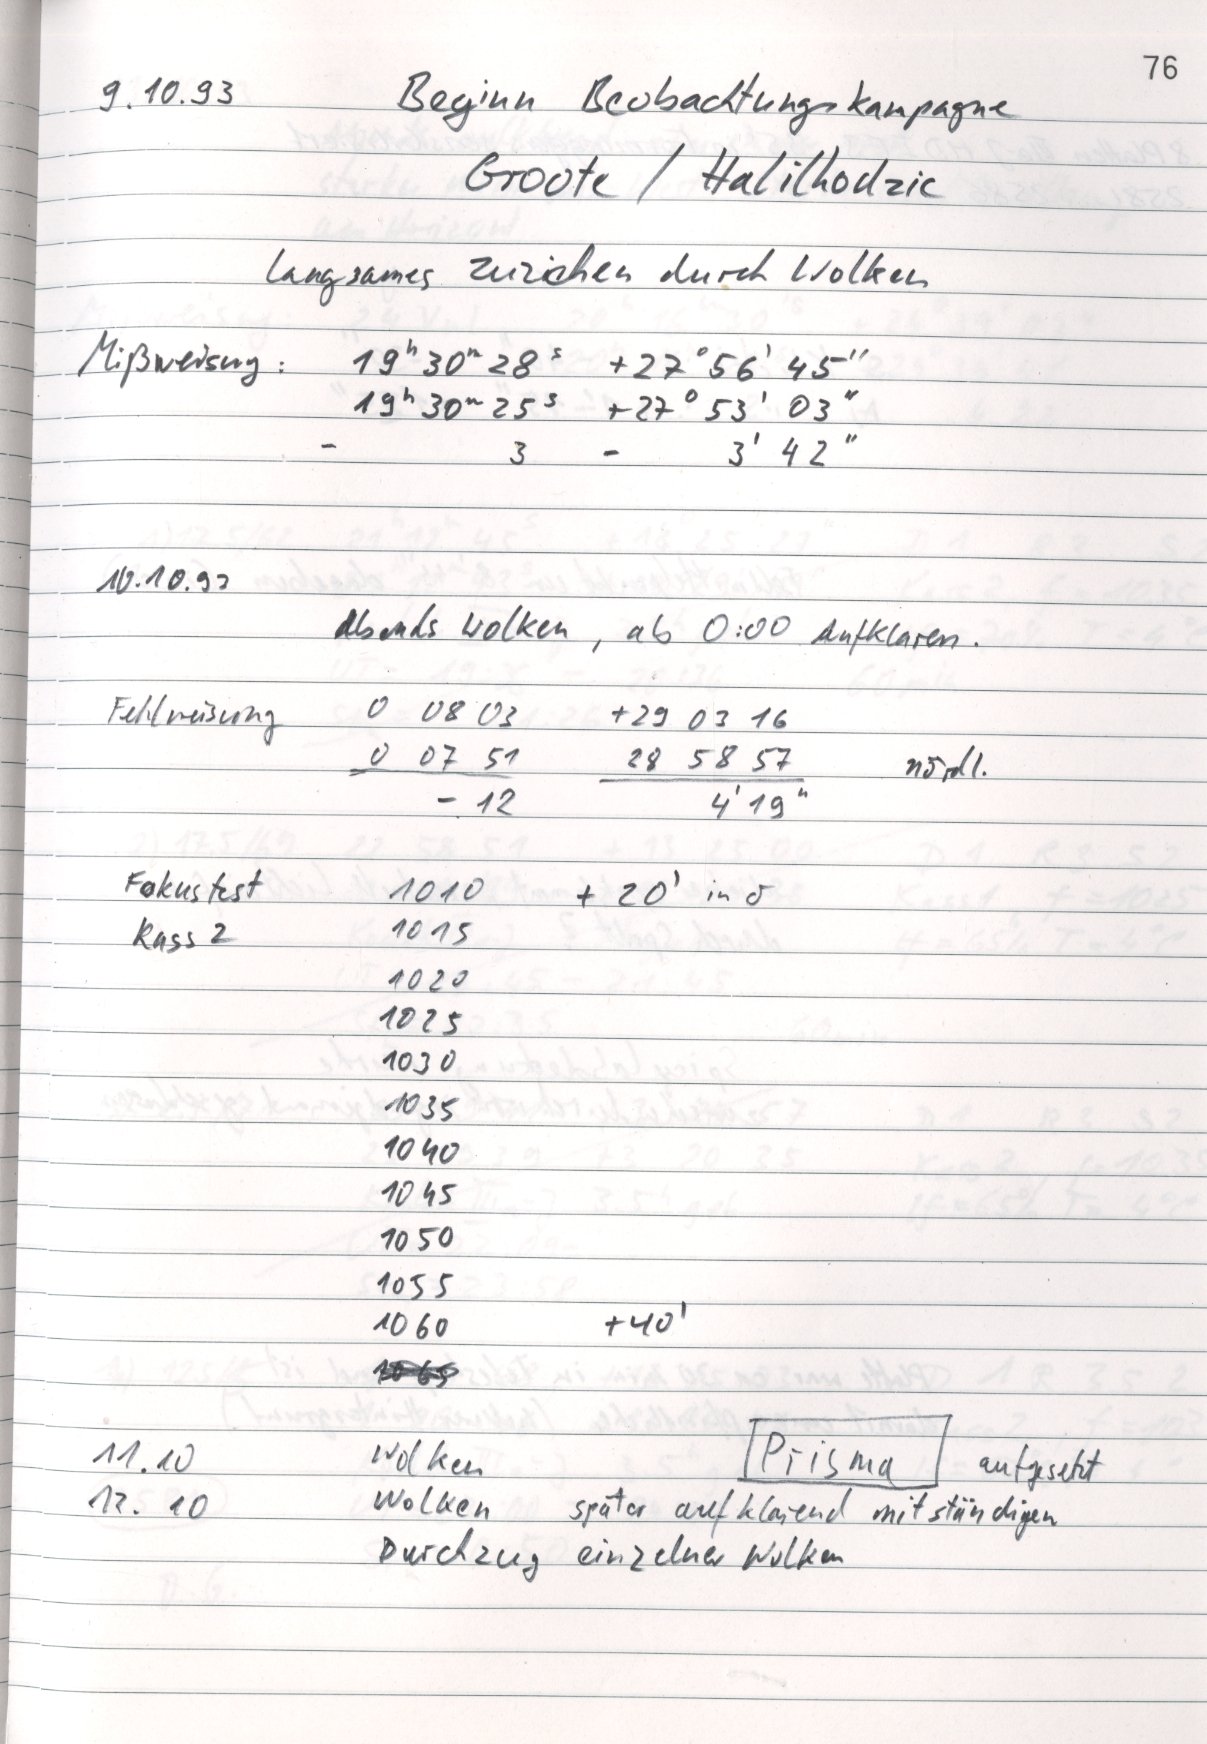 76
9.10.93 Beginn Beobachtungskampagne
Groote / Halilhodzic
Langsames Zuziehen durch Wolken
Mißweisung: 19ʰ30ᵐ28ˢ +27°56'45"
19ʰ30ᵐ25ˢ +27°53'03"
- 3 - 3'42"
10.10.93
Abends Wolken, ab 0:00 Aufklaren.
Fehlweisung 0 08 03 +29 03 16
0 07 51 28 58 57 nördl.
- 12 4'19"
Fokustest 1010 + 20' in δ
Kass 2 1015
1020
1025
1030
1035
1040
1045
1050
1055
1060 +40'
1065
11.10 Wolken Prisma aufgesetzt
12.10 Wolken später aufklarend mit ständigen
Durchzug einzelner Wolken